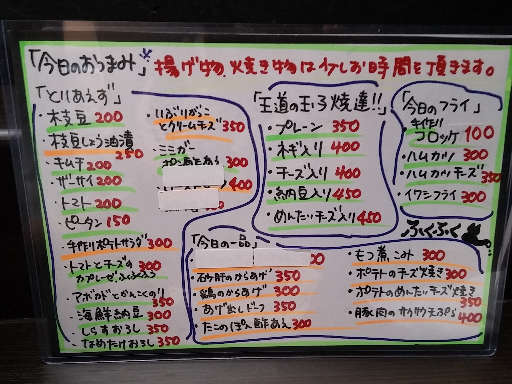 「今日のおつまみ」揚げ物、焼き物は少しお時間を頂きます。
「とりあえず」
・枝豆 200
・枝豆しょう油漬 250
・キムチ 200
・ザーサイ 200
・トマト 200
・ピータン 150
・手作りポテトサラダ 300
・トマトとチーズの
300
・アボカドとかにのり 350
・海鮮納豆 300
・しらすおろし 350
・なめたけおろし 350
・いぶりがっこ
とクリームチーズ 350
・ミミガー
ポン酢あえ 300
400
「王道の玉子焼達!!」
・プレーン 350
・ネギ入り 400
・チーズ入り 400
・納豆入り 450
・めんたいチーズ入り 450
「今日のフライ」
・手作り
コロッケ 100
・ハムカツ 300
・ハムカツチーズ 350
・イワシフライ 300
ふくふく
「今日の一品」
00
・砂肝のからあげ 350
・鶏のからあげ 300
・あげ出しドーフ 350
・たこのぽん酢あえ 300
・もつ煮こみ 300
・ポテトのチーズ焼き 300
・ポテトのめんたいチーズ焼き 350
・豚肉のサクサク天ぷら 400